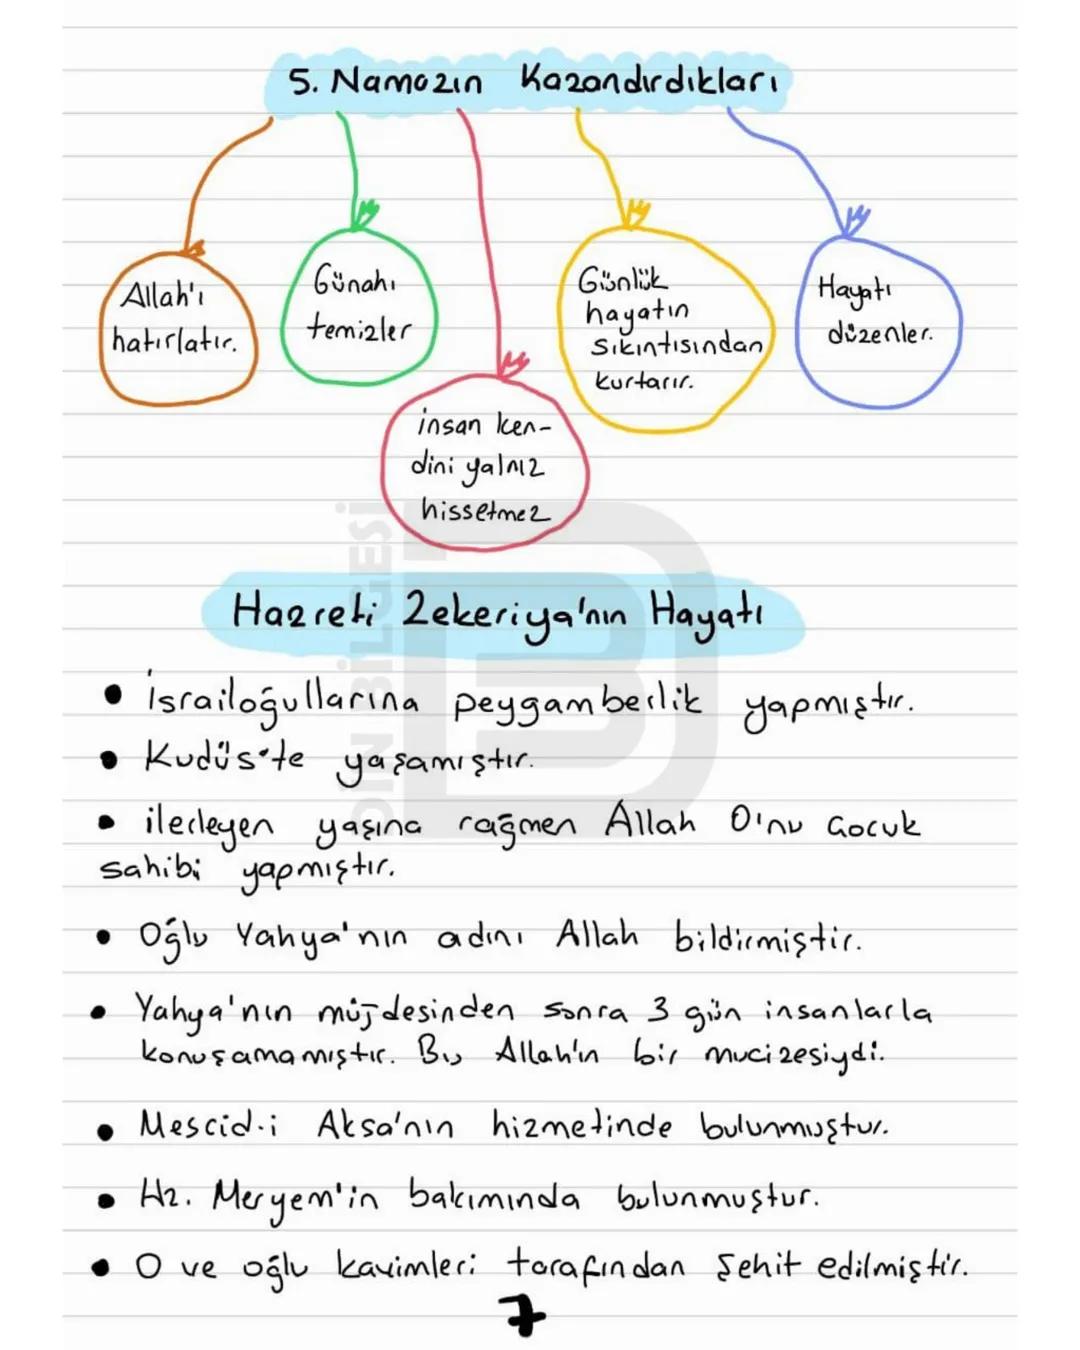 5. Namazın Kazandırdıkları
Allah'ı
hatırlatır.
Günahı
temizler
insan ken-
dini yalnız
hissetmez
Günlük
hayatın
sıkıntısından
kurtarır.
Hayatı
düzenler.
Hazreti Zekeriya'nın Hayatı
• İsrailoğullarına peygamberlik yapmıştır.
• Kudüs'te yaşamıştır.
• ilerleyen yaşına rağmen Allah O'nu Çocuk
sahibi yapmıştır.
• Oğlu Yahya'nın adını Allah bildirmiştir.
• Yahya'nın müjdesinden sonra 3 gün insanlarla
konuşamamıştır. Bu Allah'ın bir mucizesiydi.
• Mescid-i Aksa'nın hizmetinde bulunmuştur.
• Hz. Meryem'in bakımında bulunmuştur.
• O ve oğlu kavimleri tarafından şehit edilmiştir.
7
DİN BİLGESİ